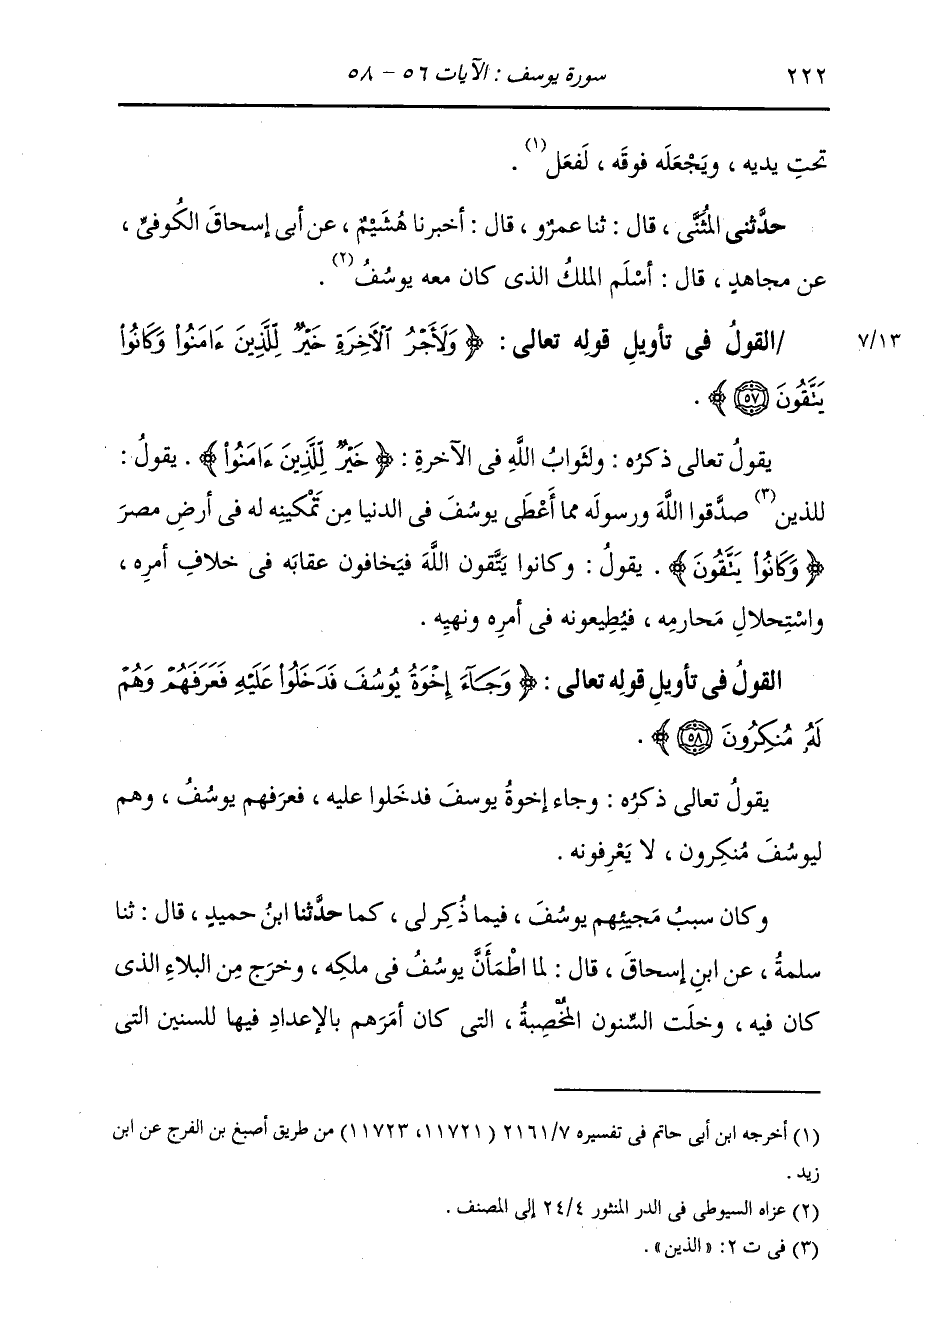 ٢٢٢ سورة يوسف : الآيات ٥٦ - ٥٨
تحتِ يديه ، ويَجْعَلَه فوقَه ، لَفعَل(١) .
حدَّثنى المُثَنَّى ، قال : ثنا عمرٌو ، قال : أخبرنا هُشَيْمٌ ، عن أبى إسحاقَ الكُوفىِّ ،
عن مجاهدٍ ، قال : أسْلَم الملكُ الذى كان معه يوسُفُ(٢) .
/القولُ فى تأويلِ قولِه تعالى : ﴿ وَلَأَجْرُ ٱلْأَخِرَةِ خَيْرٌ لِّلَّذِينَ ءَامَنُوا۟ وَكَانُوا۟
٧/١٣
يَتَّقُونَ ٥٧ ﴾ .
يقولُ تعالى ذكرُه : ولثوابُ اللَّهِ فى الآخرةِ : ﴿ خَيْرٌ لِّلَّذِينَ ءَامَنُوا۟ ﴾ . يقولُ :
للذين(٣) صدَّقوا اللَّهَ ورسولَه مما أَعْطَى يوسُفَ فى الدنيا مِن تَمْكينِه له فى أرضِ مصرَ
﴿ وَكَانُوا۟ يَتَّقُونَ ﴾ . يقولُ : وكانوا يَتَّقون اللَّهَ فيَخافون عقابَه فى خلافِ أمرِه ،
واسْتِحلالِ مَحارمِه ، فيُطِيعونه فى أمرِه ونهيِه .
القولُ فى تأويلِ قولِه تعالى : ﴿ وَجَآءَ إِخْوَةُ يُوسُفَ فَدَخَلُوا۟ عَلَيْهِ فَعَرَفَهُمْ وَهُمْ
لَهُۥ مُنكِرُونَ ٥٨ ﴾ .
يقولُ تعالى ذكرُه : وجاء إخوةُ يوسفَ فدخَلوا عليه ، فعرَفهم يوسُفُ ، وهم
ليوسُفَ مُنكِرون ، لا يَعْرِفونه .
وكان سببُ مَجيئِهم يوسُفَ ، فيما ذُكِر لى ، كما حدَّثنا ابنُ حميدٍ ، قال : ثنا
سلمةُ ، عن ابنِ إسحاقَ ، قال : لما اطْمَأَنَّ يوسُفُ فى ملكِه ، وخرَج مِن البلاءِ الذى
كان فيه ، وخلَت السِّنون المُخْصِبةُ ، التى كان أمَرَهم بالإعدادِ فيها للسنين التى
(١) أخرجه ابن أبى حاتم فى تفسيره ٢١٦١/٧ (١١٧٢١، ١١٧٢٣) من طريق أصبغ بن الفرج عن ابن
زيد .
(٢) عزاه السيوطى فى الدر المنثور ٢٤/٤ إلى المصنف .
(٣) فى ت ٢: «الذين» .